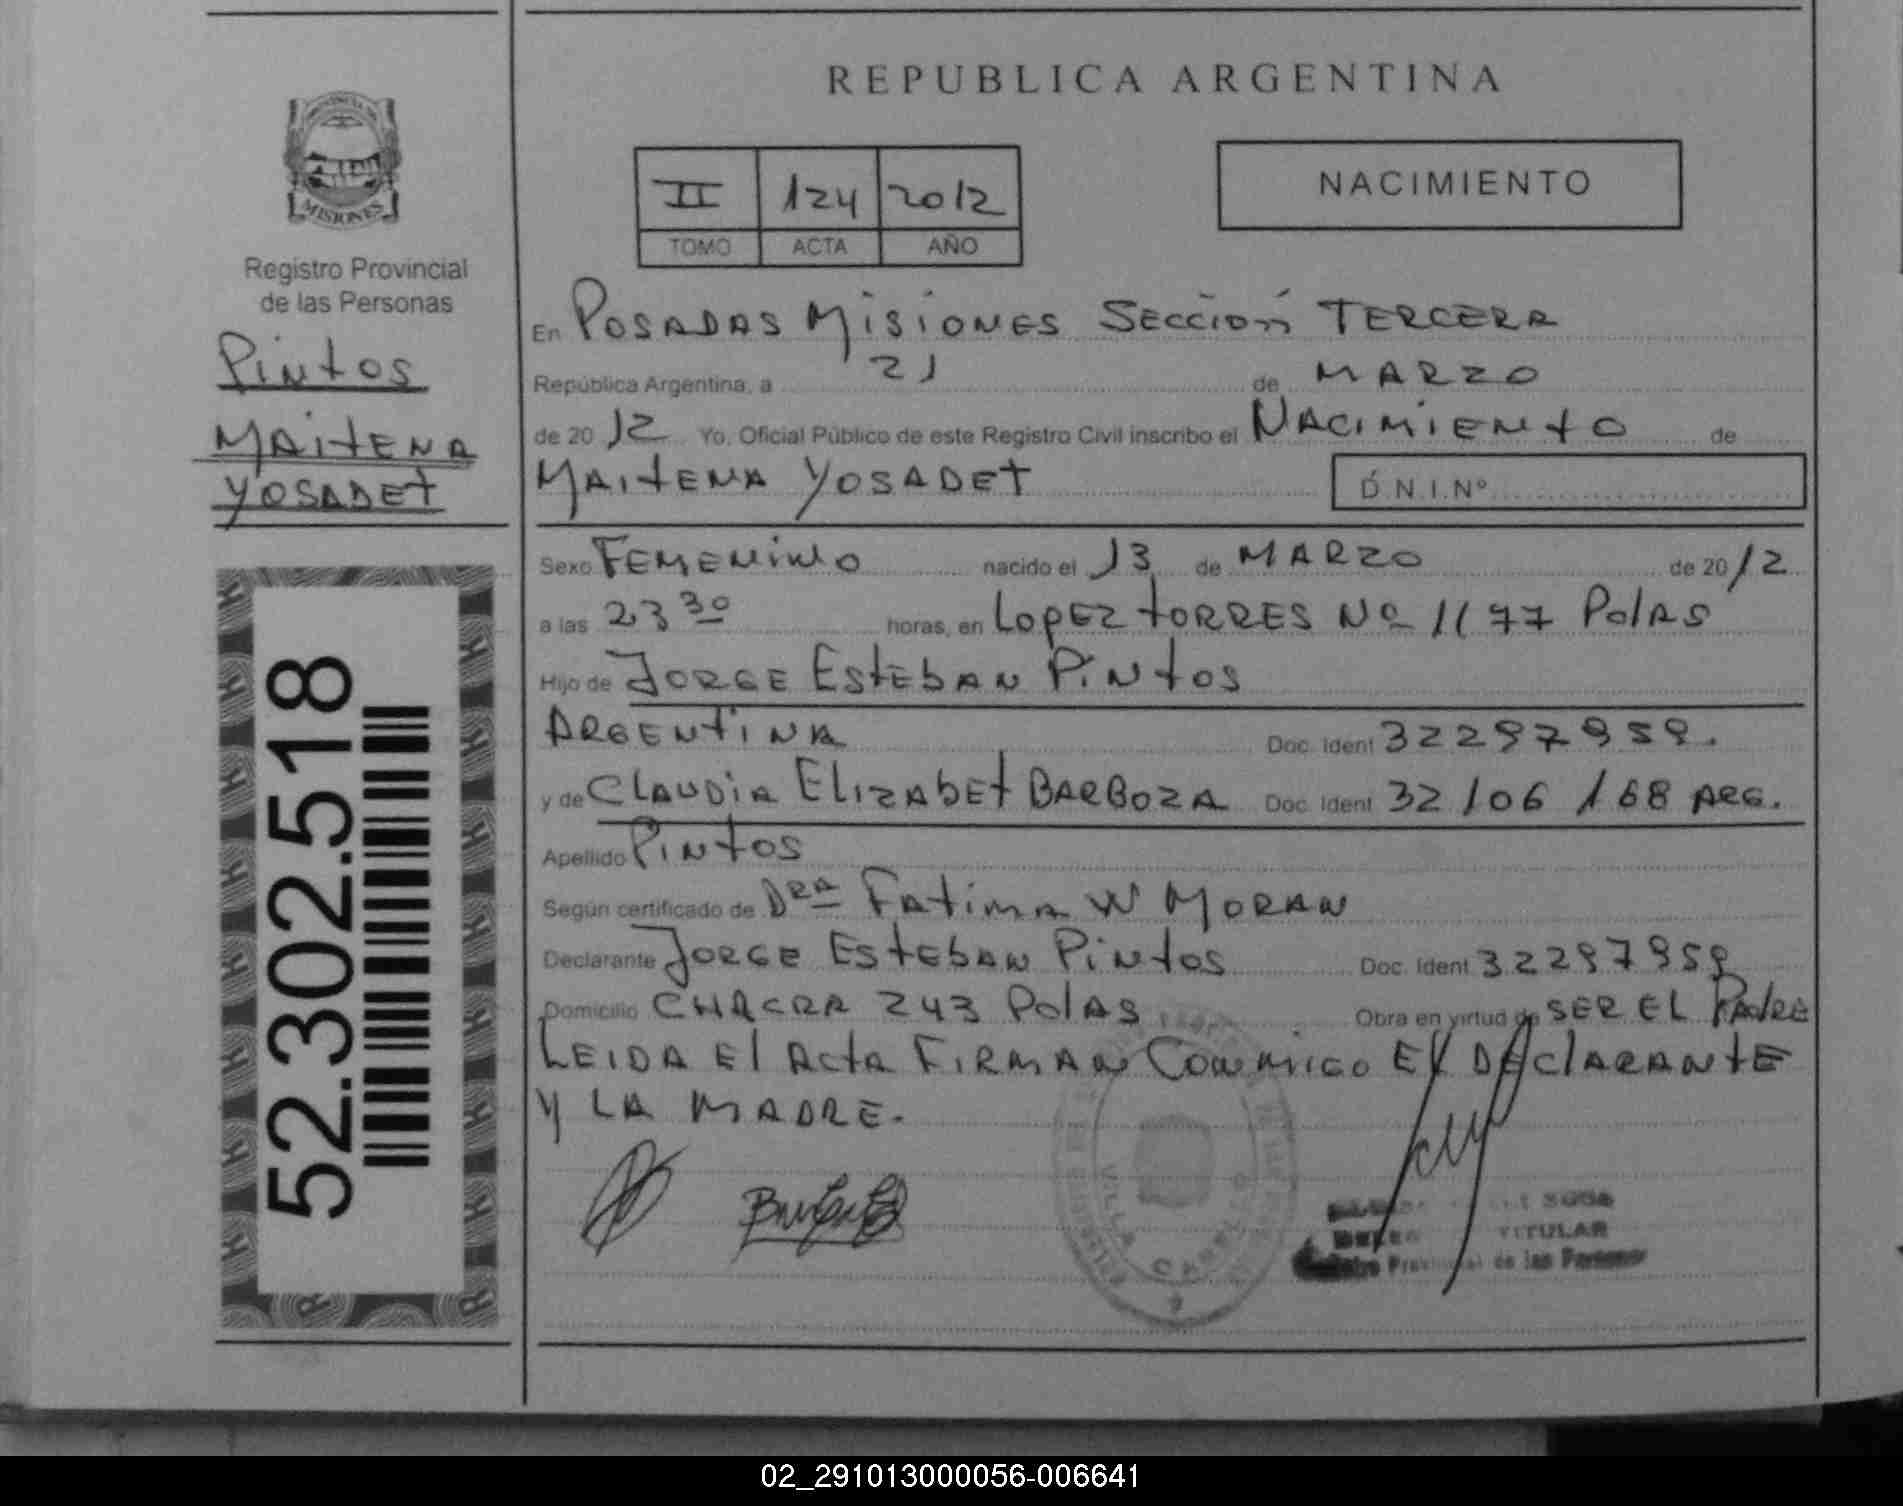 PROVINCIA DE
MISIONES
Registro Provincial
de las Personas
Pintos
MAITENA
YOSADET
52.302.518
REPUBLICA ARGENTINA
II 124 2012
TOMO ACTA AÑO
NACIMIENTO
En POSADAS MISIONES SECCIÓN TERCERA
República Argentina, a 21 de MARZO
de 20 12 Yo, Oficial Público de este Registro Civil inscribo el NACIMIENTO de
MAITENA YOSADET D.N.I.Nº
Sexo FEMENINO nacido el 13 de MARZO de 20 12
a las 23 30 horas, en LOPEZ TORRES Nº 1177 PdAS
Hijo de JORGE ESTEBAN PINTOS
ARGENTINA Doc. Ident 32297959.
y de CLAUDIA ELIZABET BARBOZA Doc. Ident 32 106 168 ARG.
Apellido PINTOS
Según certificado de DRA FATIMA W MORAN
Declarante JORGE ESTEBAN PINTOS Doc. Ident 32297959
Domicilio CHACRA 243 PdAS Obra en virtud de SER EL PADRE
LEIDA El ACTA FIRMAN CONMIGO EL DECLARANTE
Y LA MADRE.
VILLA CABELLO
TITULAR
de las Personas
02_291013000056-006641